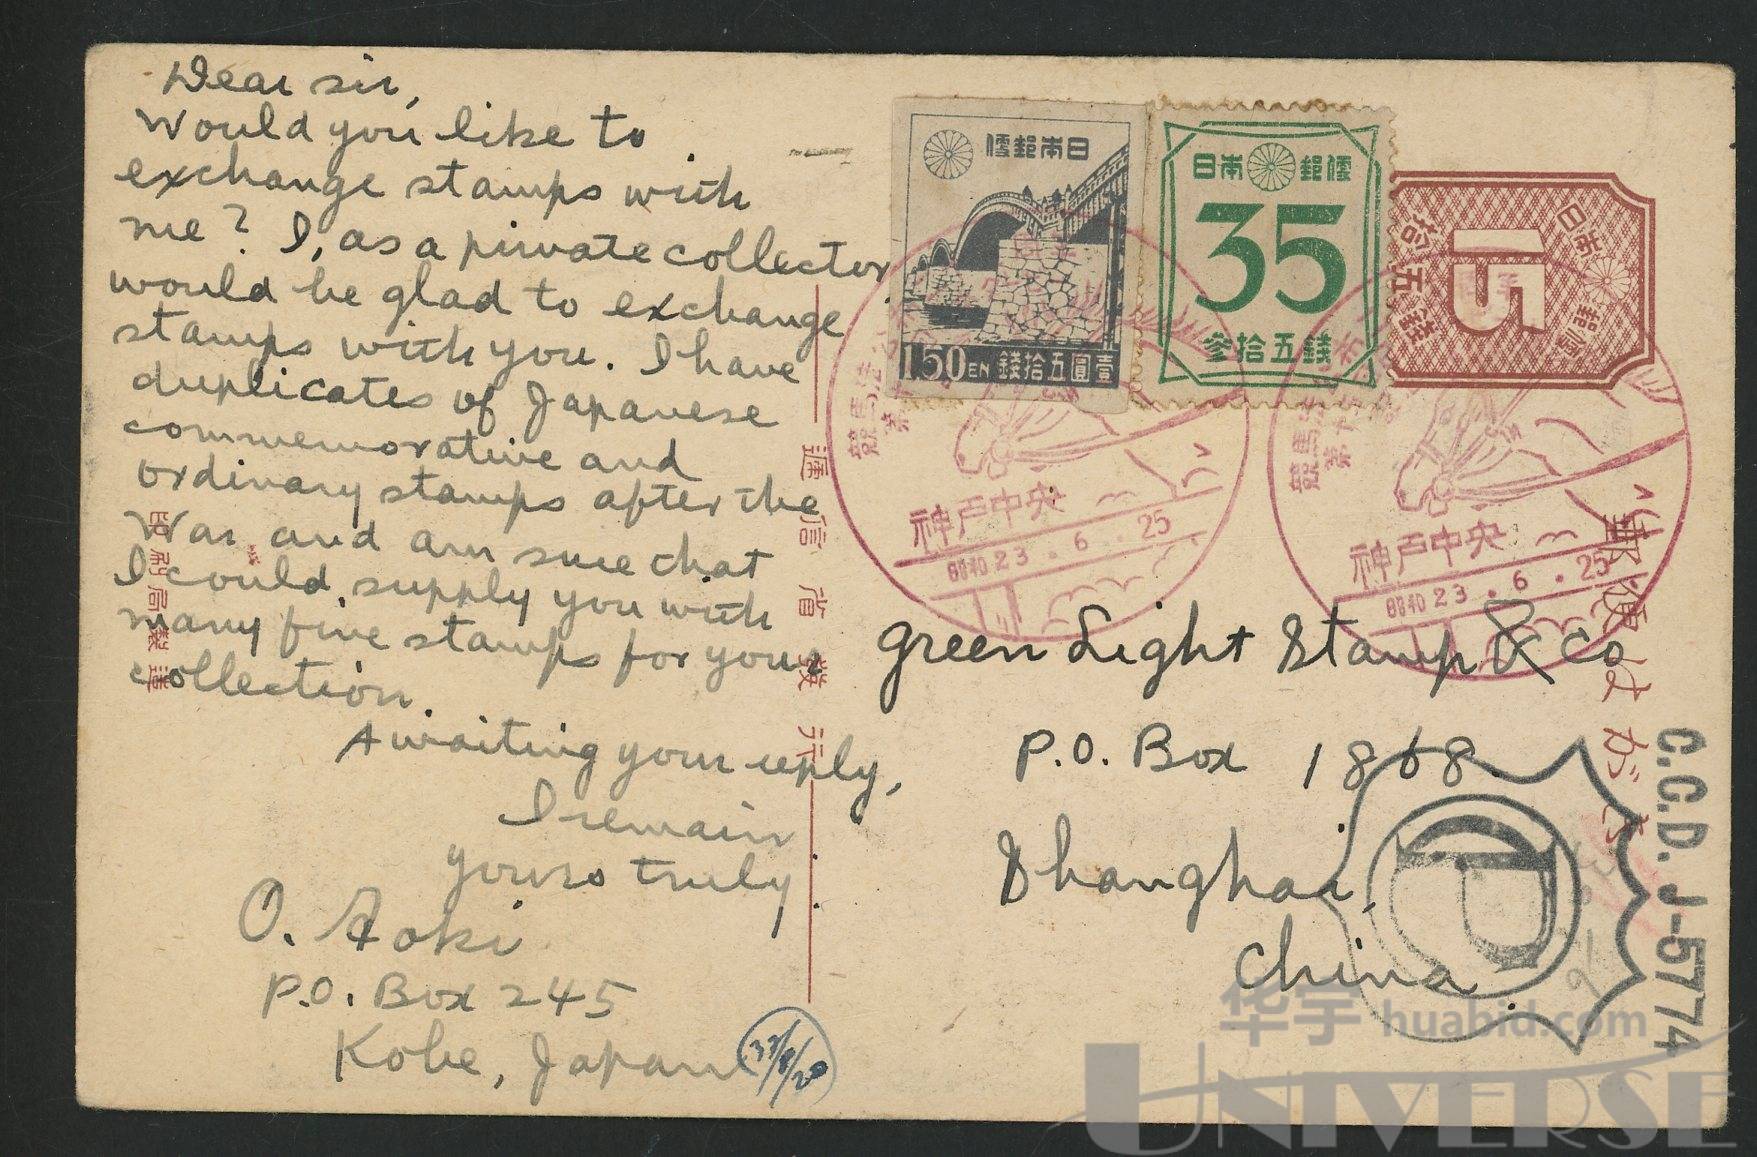 Dear sir,
Would you like to
exchange stamps with
me? I, as a private collector,
would be glad to exchange
stamps with you. I have
duplicates of Japanese
commemorative and
ordinary stamps after the
War and am sure that
I could supply you with
many fine stamps for your
collection.
Awaiting your reply,
I remain
yours truly
O. Aoki
P.O. Box 245
Kobe, Japan
印刷局製造
逓信省発行
日本郵便
1.50EN 壹圓五拾錢
日本郵便
35
参拾五錢
日本郵便
15
拾五錢
競馬法
神戸中央
昭和23.6.25
競馬法
神戸中央
昭和23.6.25
郵便はがき
green Light Stamp & Co
P.O. Box 1868
Shanghai,
China.
C.C.D. J-5774
华宇 huabid.com
UNIVERSE